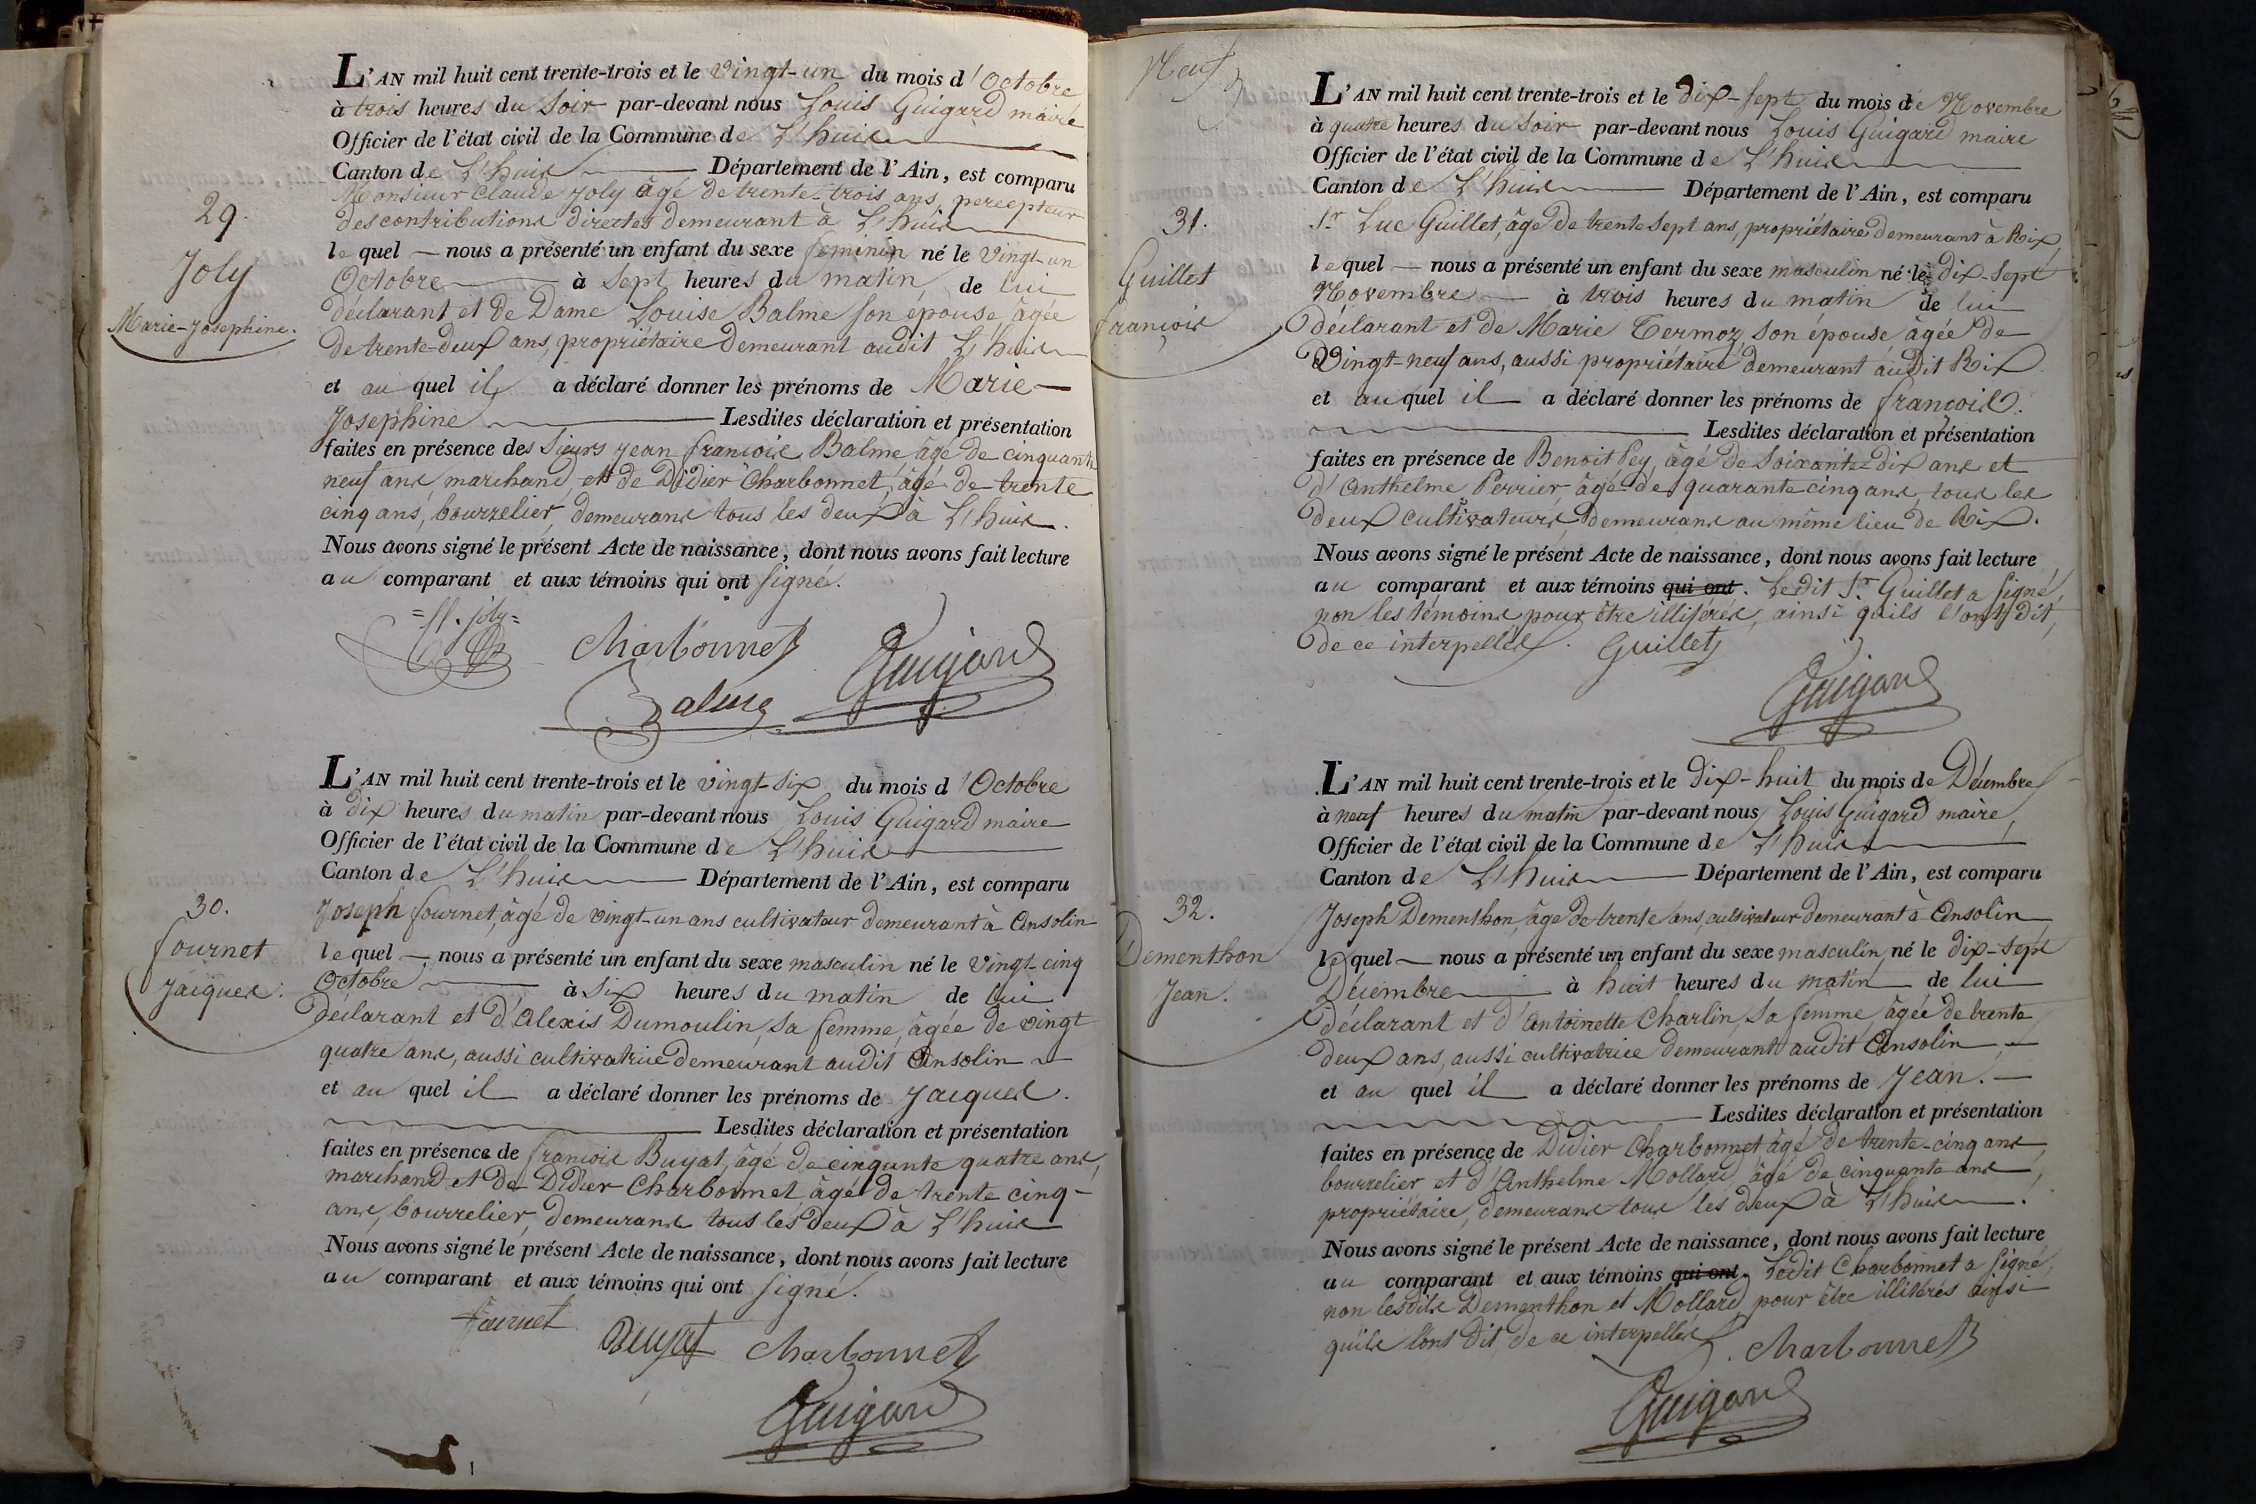 29.
Joly
Marie-Josephine.
L'AN mil huit cent trente-trois et le vingt-un du mois d'Octobre
à trois heures du soir par-devant nous Louis Guigard maire
Officier de l'état civil de la Commune de L'huis
Canton de L'huis Département de l'Ain, est comparu
Monsieur Claude Joly âgé de trente-trois ans, percepteur
des contributions directes demeurant à L'huis
lequel nous a présenté un enfant du sexe feminin né le vingt-un
Octobre à sept heures du matin de lui
déclarant et de Dame Louise Balme son épouse âgée
de trente-deux ans, propriétaire demeurant audit L'huis
et au quel il a déclaré donner les prénoms de Marie-
Josephine Lesdites déclaration et présentation
faites en présence des Sieurs jean françois Balme âgé de cinquante
neuf ans marchand et de Didier Charbonnet, âgé de trente
cinq ans, bourrelier, demeurans tous les deux à L'huis.
Nous avons signé le présent Acte de naissance, dont nous avons fait lecture
au comparant et aux témoins qui ont signé.
joly
Charbonnet
Balme
Guigard
30.
fournet
jacques.
L'AN mil huit cent trente-trois et le vingt-six du mois d'Octobre
à dix heures du matin par-devant nous Louis Guigard maire
Officier de l'état civil de la Commune de L'huis
Canton de L'huis Département de l'Ain, est comparu
Joseph fournet, âgé de vingt-un ans cultivateur demeurant à Ansolin
lequel nous a présenté un enfant du sexe masculin né le vingt-cinq
Octobre à six heures du matin de lui
déclarant et d'Alexis Dumoulin, sa femme, âgée de vingt
quatre ans, aussi cultivatrice demeurant audit Ansolin
et au quel il a déclaré donner les prénoms de jacques.
Lesdites déclaration et présentation
faites en présence de françois Buyat, âgé de cinqunte quatre ans,
marchand et de Didier Charbonnet âgé de trente cinq
ans, bourrelier, demeurans tous les deux à L'huis
Nous avons signé le présent Acte de naissance, dont nous avons fait lecture
au comparant et aux témoins qui ont signé.
fournet
Buyat
Charbonnet
Guigard
Neuf
31.
Guillet
françois
L'AN mil huit cent trente-trois et le dix-sept du mois de Novembre
à quatre heures du soir par-devant nous Louis Guigard maire
Officier de l'état civil de la Commune de L'huis
Canton de L'huis Département de l'Ain, est comparu
Sr Luc Guillet, âgé de trente sept ans, propriétaire demeurant à Rix,
lequel nous a présenté un enfant du sexe masculin né le dix-sept
Novembre à trois heures du matin de lui
déclarant et de Marie Termoz, son épouse, âgée de
vingt-neuf ans, aussi propriétaire demeurant audit Rix
et au quel il a déclaré donner les prénoms de françois.
Lesdites déclaration et présentation
faites en présence de Benoit Pey, âgé de soixante-dix ans et
d'Anthelme Perrier, âgé de quarante cinq ans, tous les
deux cultivateurs, demeurans au même lieu de Rix.
Nous avons signé le présent Acte de naissance, dont nous avons fait lecture
au comparant et aux témoins qui ont. Ledit Sr Guillet a signé,
non les témoins pour être illiterés, ainsi quils l'ont dit,
de ce interpellés.
Guillet
Guigard
32.
Dementhon
Jean.
L'AN mil huit cent trente-trois et le dix-huit du mois de Décembre
à neuf heures du matin par-devant nous Louis Guigard maire,
Officier de l'état civil de la Commune de L'huis
Canton de L'huis Département de l'Ain, est comparu
Joseph Dementhon, âgé de trente ans, cultivateur demeurant à Ansolin
lequel nous a présenté un enfant du sexe masculin, né le dix-sept
Décembre à huit heures du matin de lui
déclarant et d'Antoinette Charlin, sa femme, âgée de trente
deux ans, aussi cultivatrice demeurant audit Ansolin
et au quel il a déclaré donner les prénoms de Jean.
Lesdites déclaration et présentation
faites en présence de Didier Charbonnet âgé de trente-cinq ans,
bourrelier et d'Anthelme Mollard, âgé de cinquante ans,
propriétaire, demeurans tous les deux à L'huis.
Nous avons signé le présent Acte de naissance, dont nous avons fait lecture
au comparant et aux témoins qui ont. Ledit Charbonnet a signé,
non lesdits Dementhon et Mollard, pour être illitérés ainsi
qu'ils l'ont dit, de ce interpellés.
Charbonnet
Guigard